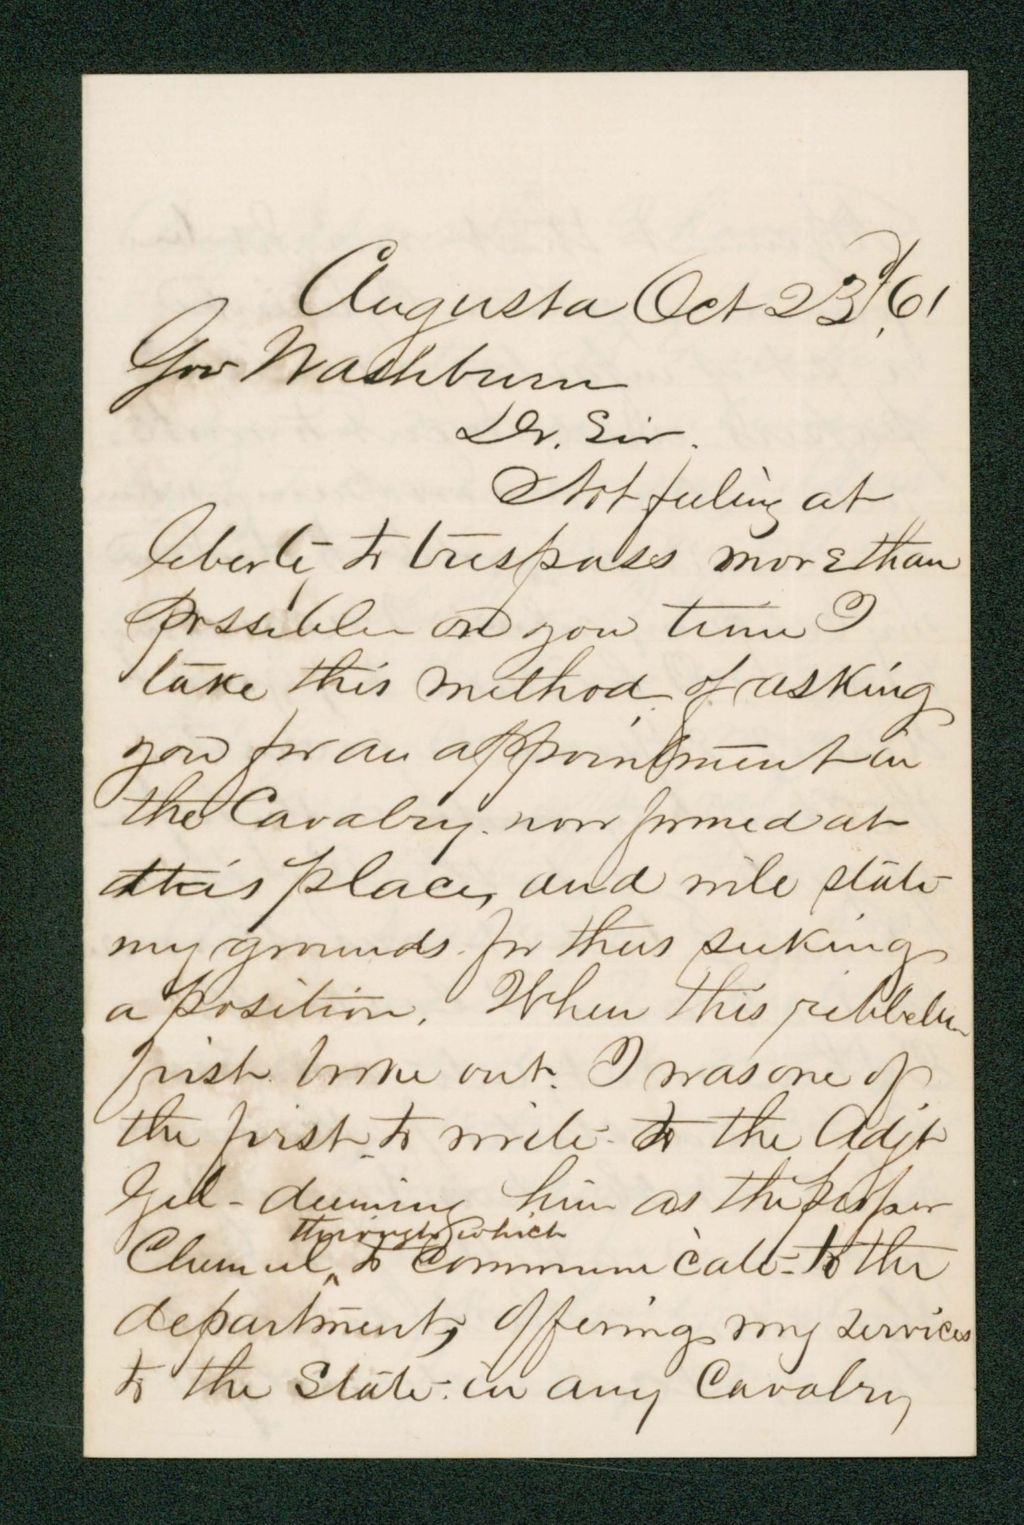 Augusta Oct 23d, 61
Gov Washburn
Dr. Sir.
Not feeling at
liberty to trespass more than
possible on you time I
take this method of asking
you for an appointment in
the Cavalry now formed at
this place, and will state
my grounds for thus seeking
a position. When this
first broke out. I was one of
the first to write to the Adjt
Genl - deeming him as the proper
through which
to communicate to the
department, offering my services
to the State in any Cavalry